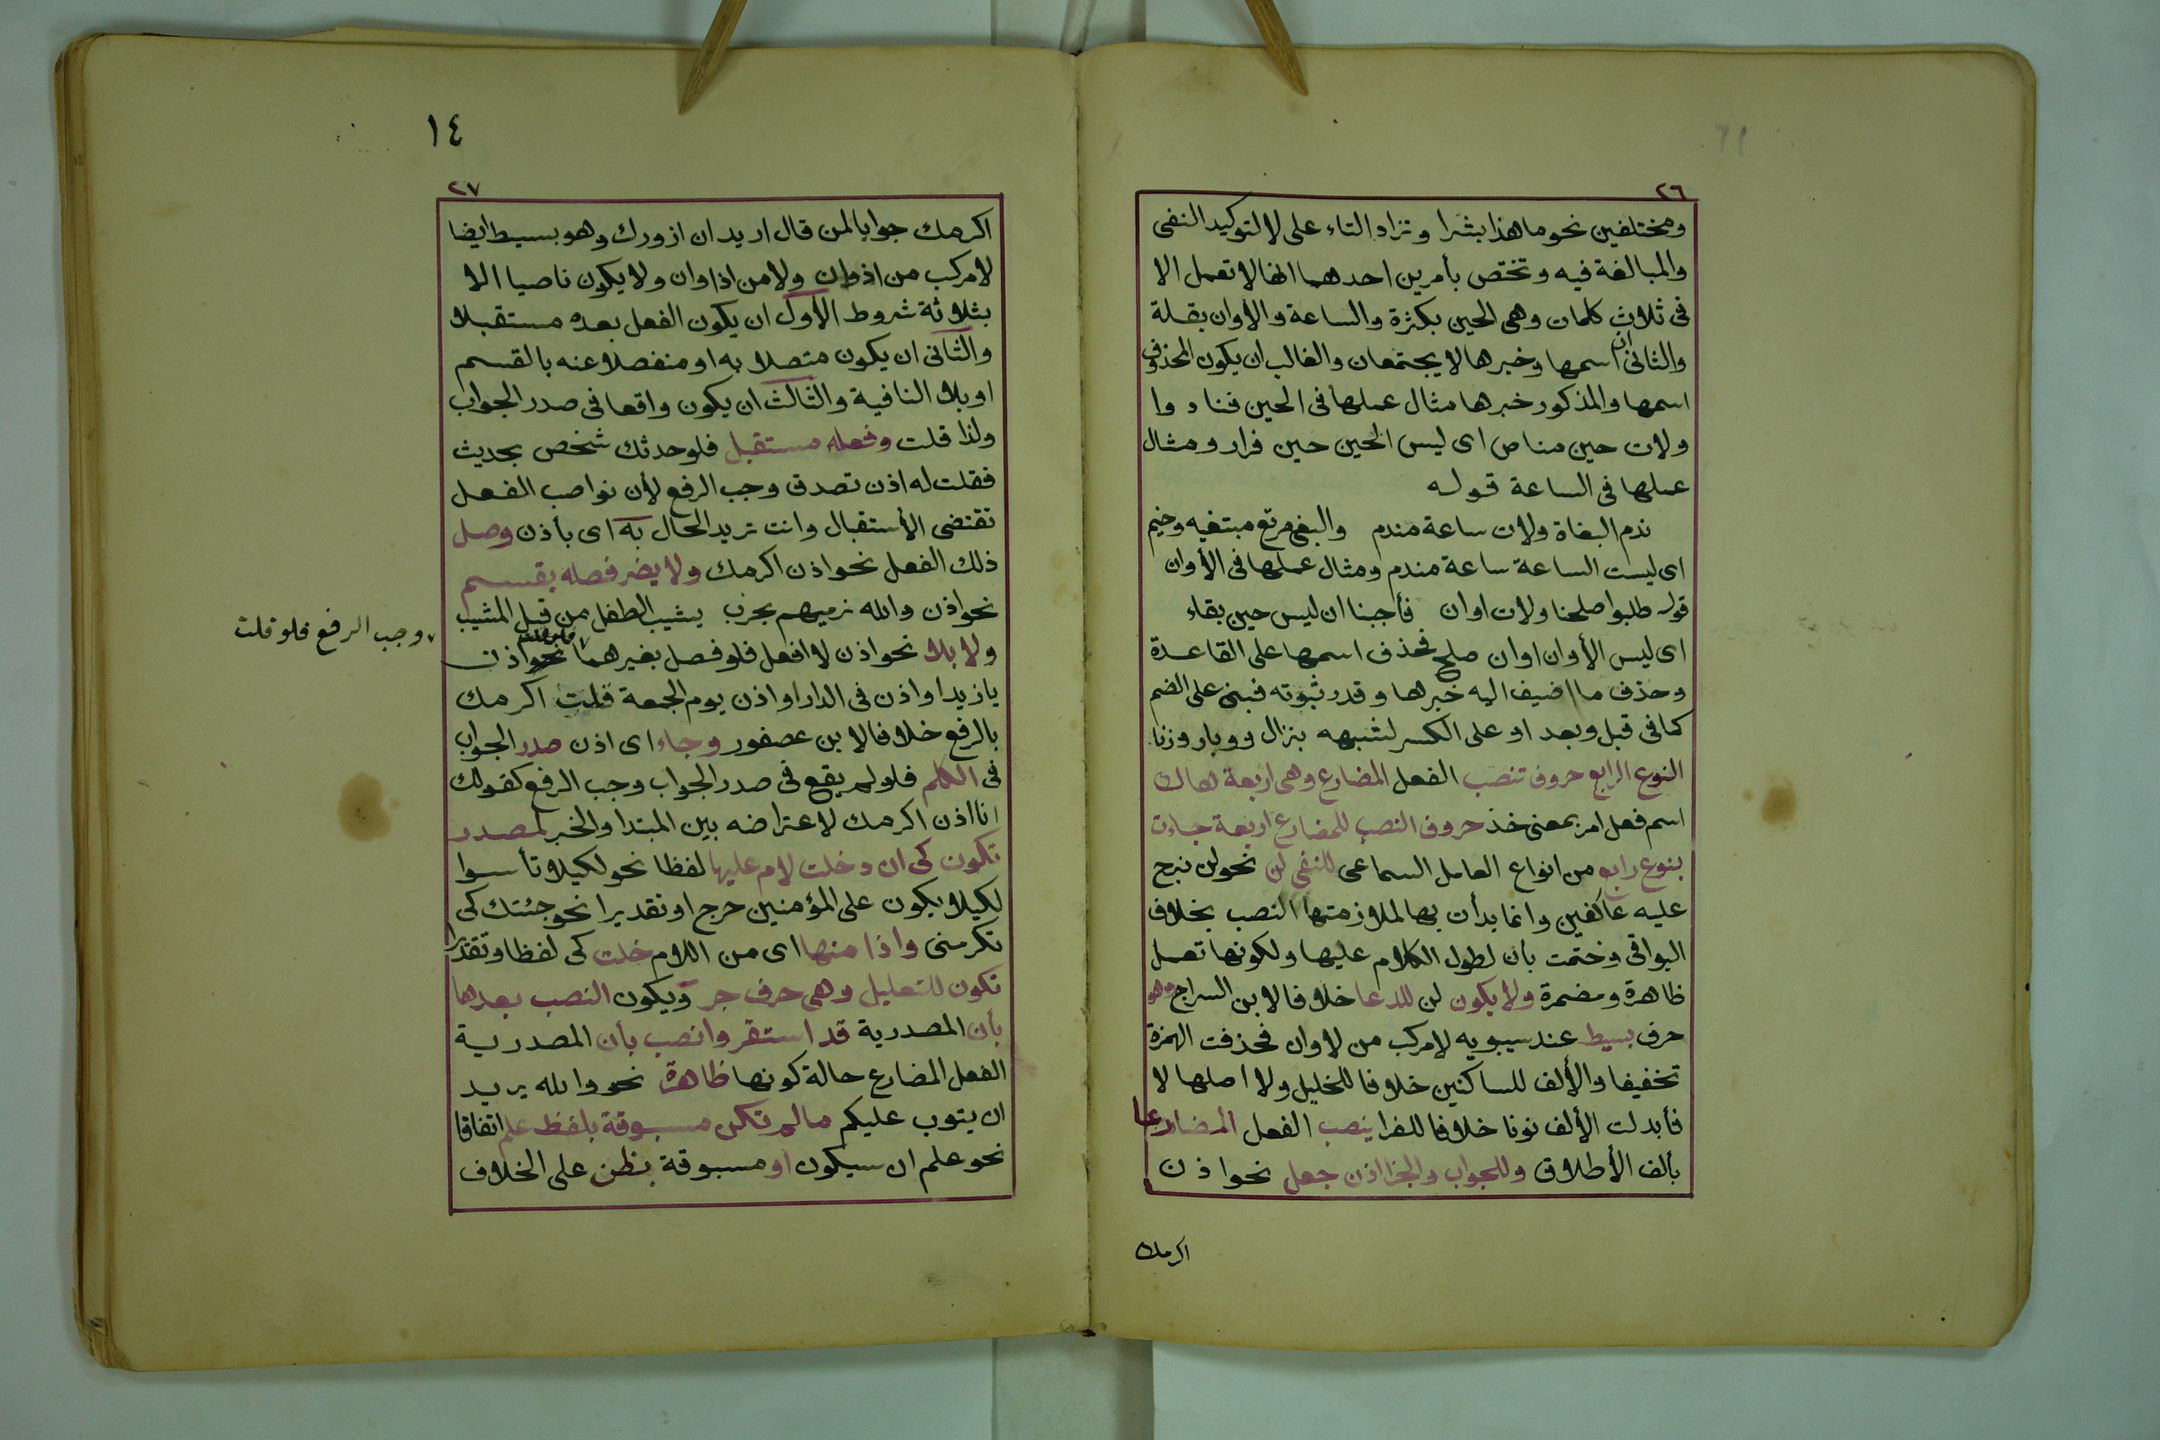 ٢٦
ومختلفين نحو ما هذا بشرا وتزاد التاء على لا لتوكيد النفى
والمبالغة فيه وتختص بأمرين احدهما انها لا تعمل الا
فى ثلاث كلمان وهى الحين بكثرة والساعة والاوان بقلة
والثانى ان اسمها وخبرها لا يجتمعان والغالب ان يكون المحذوف
اسمها والمذكور خبرها مثال عملها فى الحين فنادوا
ولات حين مناص اى ليس الحين حين فرار ومثال
عملها فى الساعة قوله
ندم البغاة ولات ساعة مندم والبغى مرتع مبتغيه وخيم
اى ليست الساعة ساعة مندم ومثال عملها فى الأوان
قوله طلبوا صلحنا ولات اوان فأجبنا ان ليس حين بقاء
اى ليس الأوان اوان صلح فحذف اسمها على القاعدة
وحذف ما اضيف اليه خبرها وقدر ثبوته فبنى على الضم
كما فى قبل وبعد او على الكسر لشبهه بنزال ووبار وزنا
النوع الرابع حروف تنصب الفعل المضارع وهى اربعة لهاك
اسم فعل امر بمعنى خذ حروف النصب للمضارع اربعة جاءت
بنوع رابع من انواع العامل السماعى للنفى لن نحو لن نبرح
عليه عاكفين وانما بدأت بها لملازمتها النصب بخلاف
البواقى وختمت بان لطول الكلام عليها ولكونها تعمل
ظاهرة ومضمرة ولا يكون لن للدعا خلافا لابن السراج وهو
حرف بسيط عند سيبويه لا مركب من لا وان فحذفت الهمزة
تخفيفا والألف للساكنين خلافا للخليل ولا اصلها لا
فأبدلت الألف نونا خلافا للفرا ينصب الفعل المضارعا
بألف الأطلاق وللجواب والجزا اذن جعل نحو اذن
اكرمك
١٤
٢٧
اكرمك جوابا لمن قال اريد ان ازورك وهو بسيط ايضا
لا مركب من اذ وان ولا من اذا وان ولا يكون ناصبا الا
بثلاثة شروط الأول ان يكون الفعل بعده مستقبلا
والثانى ان يكون متصلا به او منفصلا عنه بالقسم
او بلا النافية والثالث ان يكون واقعا فى صدر الجواب
ولذا قلت وفعله مستقبل فلو حدثك شخص بحديث
فقلت له اذن تصدق وجب الرفع لأن نواصب الفعل
تقتضى الأستقبال وانت تريد الحال به اى بأذن وصل
ذلك الفعل نحو اذن اكرمك ولا يضر فصله بقسم
نحو اذن والله نرميهم بحرب يشيب الطفل من قبل المشيب
ولا بلا نحو اذن لا افعل فلو فصل بغيرهما نحو اذن
وجب الرفع فلو قلت
يا زيد او اذن فى الدار او اذن يوم الجمعة قلت اكرمك
بالرفع خلافا لابن عصفور وجاء اى اذن صدر الجواب
فى الكلم فلو لم يقع فى صدر الجواب وجب الرفع كقولك
انا اذن اكرمك لاعتراضه بين المبتدا والخبر لمصدر
تكون كى ان دخلت لام عليها لفظا نحو لكيلا تأسوا
لكيلا يكون على المؤمنين حرج او تقديرا نحو جئتك كى
تكرمنى واذا منها اى من اللام خلت كى لفظا وتقديرا
تكون للتعليل وهى حرف جر ويكون النصب بعدها
بأن المصدرية قد استقر وانصب بأن المصدرية
الفعل المضارع حالة كونها ظاهرة نحو والله يريد
ان يتوب عليكم ما لم تكن مسبوقة بلفظ علم اتفاقا
نحو علم ان سيكون او مسبوقة بظن على الخلاف